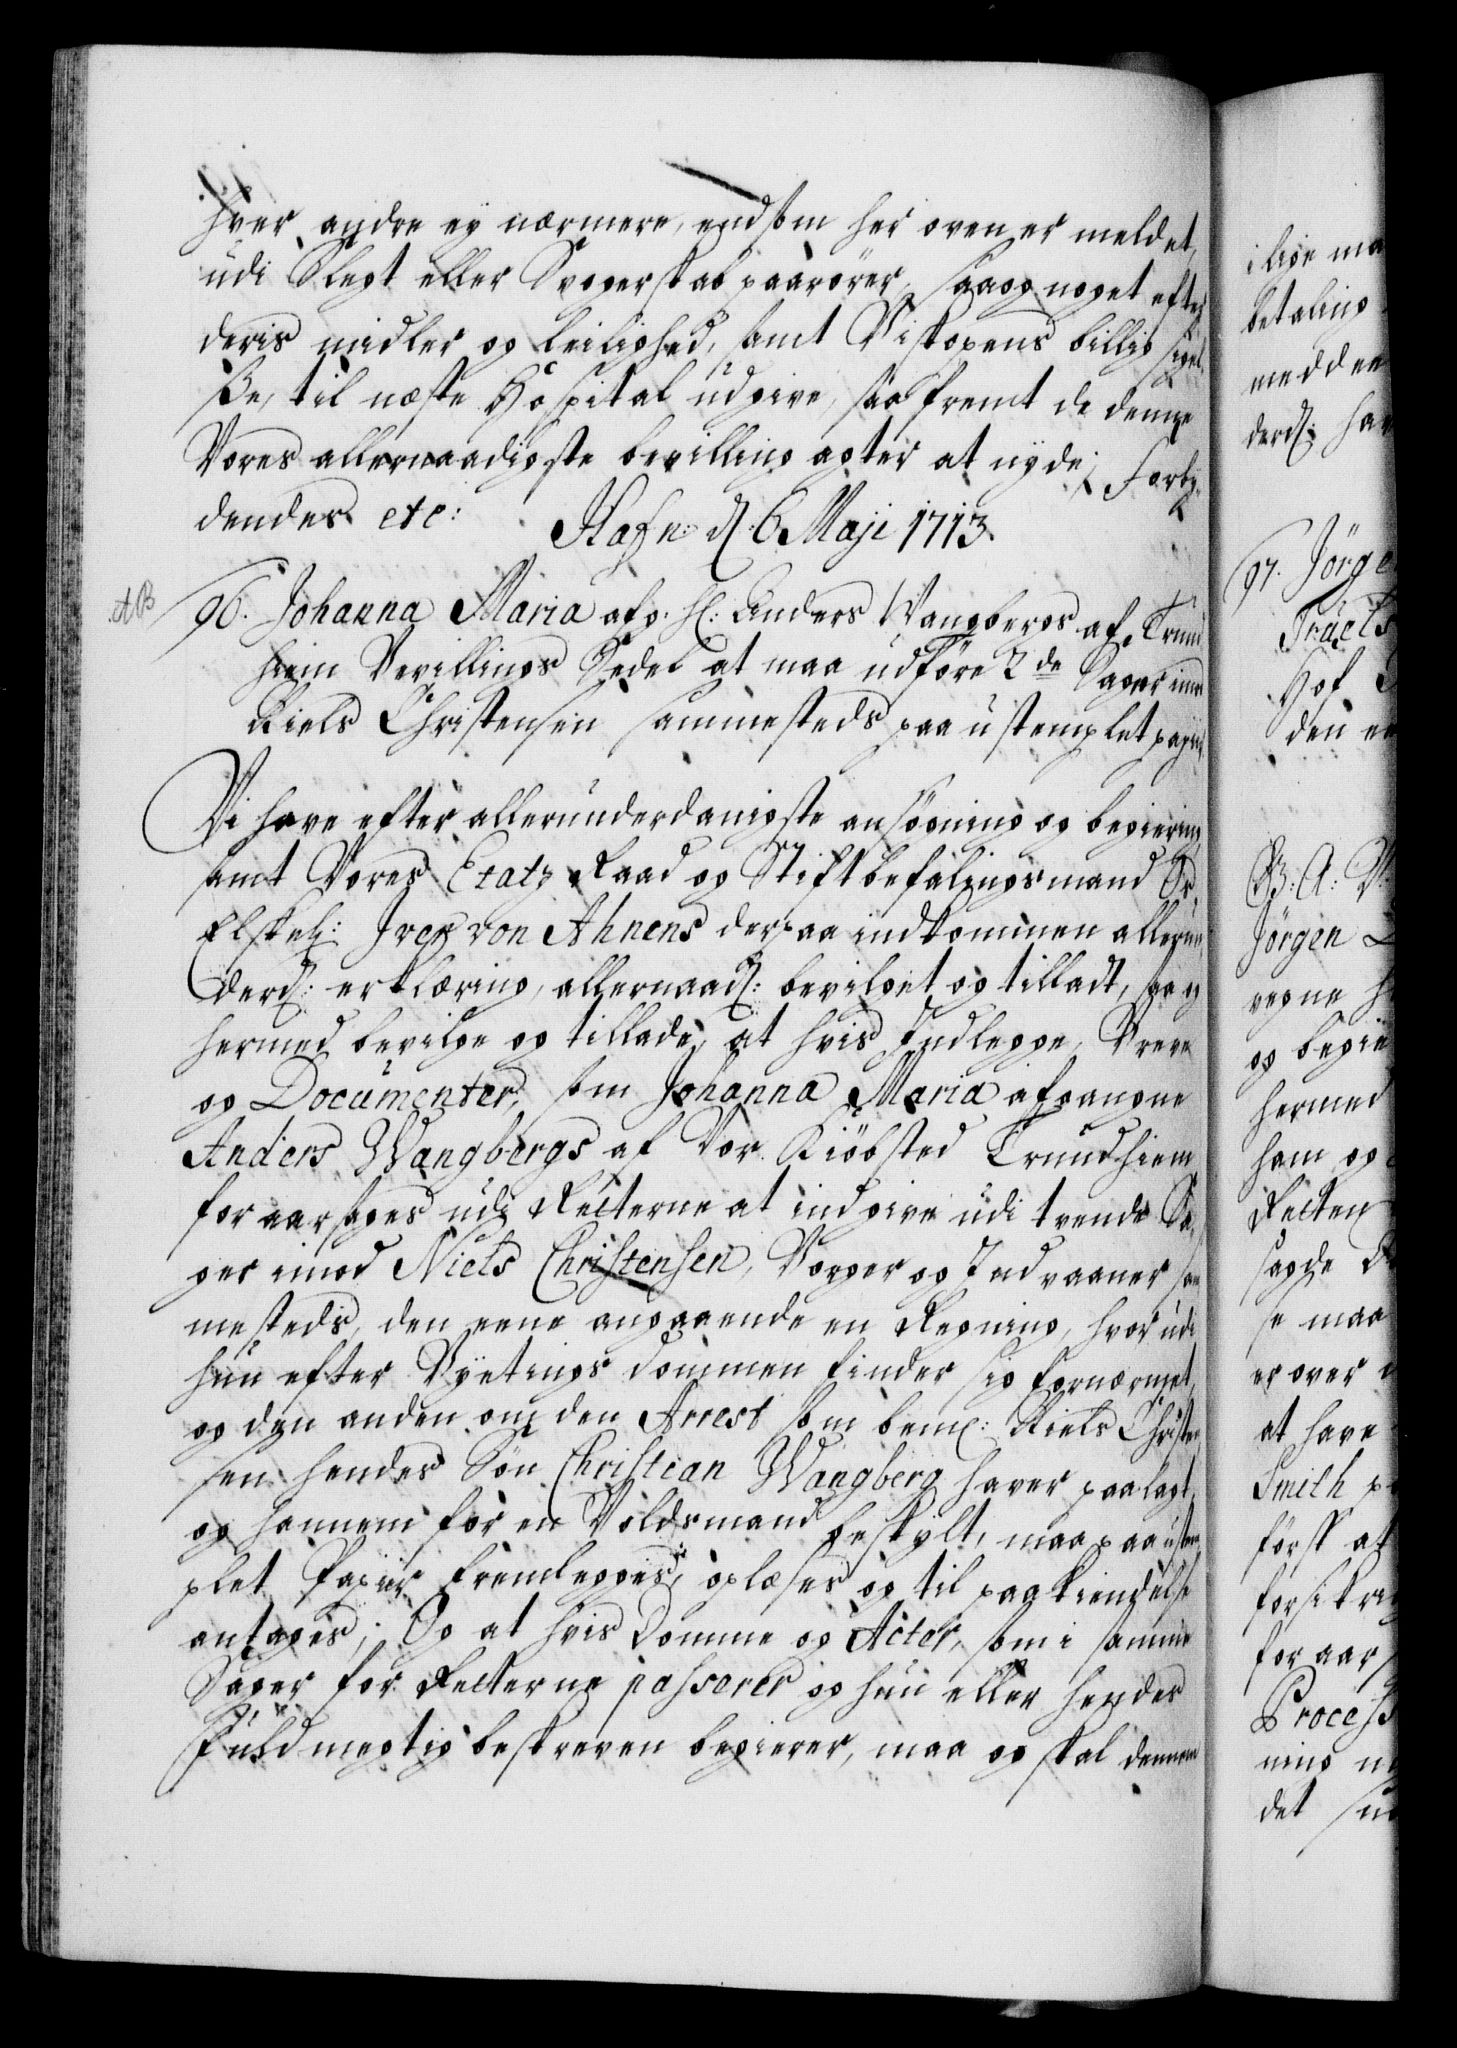 hver andre ey nærmere, end som her oven er meldet,
udi Slegt eller Svogerskab paarörer, saa og noget efter
deris midler og leilighed, samt Biskopens billig sigel-
se, til næste Hospital udgive, saa fremt de denne
Vores allernaadigste bevilling agter at nyde; Forby-
dendes etc: Hafn: d. 6 Maji 1713.
AB
96. Johanna Maria afg. Sl: Anders Wangbergs af Trund
hiem Bevillings Sedel at maa udföre 2de Sager imod
Niels Christensen sammesteds paa ustemplet papiir
Vi have efter allerunderdanigste ansögning og begiering,
samt Vores Etatz Raad og Stiftbefalingsmand Os
Elskel: Iven von Ahnens derpaa indkommen allerun
derd: erklæring, allernaad: bevilget og tilladt, saa og
hermed bevilge og tillade, at hvis Indlegge, Breve
og Documenter, som Johanna Maria afgangne
Anders Wangbergs af Vor Kiöbsted Trundhiem
foraarsages udi Retterne at indgive udi tvende Sa-
ger imod Niels Christensen, Borger og Indvaaner sam
mesteds, den eene angaaende en Regning, hvorudi
hun efter Byetings dommen finder sig fornærmet,
og den anden om den Arrest som bem: Niels Christen
sen hendes Sön Christian Wangberg haver paalagt,
og hannem for en Voldsmand beskylt, maa paa ustem
plet Papiir fremlegges, oplæses og til paakiendelse
antages; Og at hvis Domme og Acter, som i samme
Sager for Retterne passerer og hun eller hendes
Fuldmegtig beskreven begierer, maa og skal dennem
ilige ma
betaling
meddee
derd: hav
97. Jörge
Truels
Hof
den en
G: A: V:
Jörgen
vegne h
og begie
hermed
ham og
Retten
sagde
se maa
er over
at have
Smith p
först at
forsikri
foraar
Process
ning
det